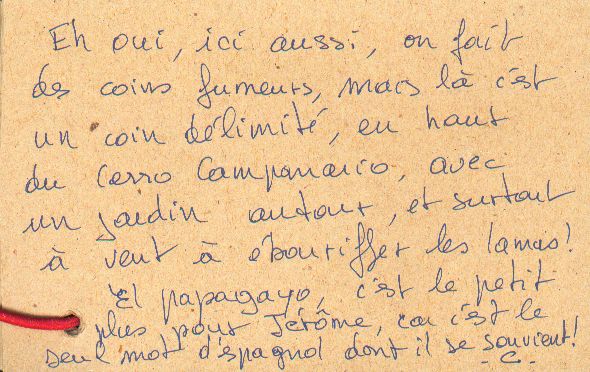 Eh oui, ici aussi, on fait
des coins fumeurs, mais là c'est
un coin délimité, en haut
du Cerro Campanario, avec
un jardin autour, et surtout
à vent à ébouriffer les lamas!
El papagayo, c'est le petit
plus pour Jérôme, car c'est le
seul mot d'espagnol dont il se souvient!